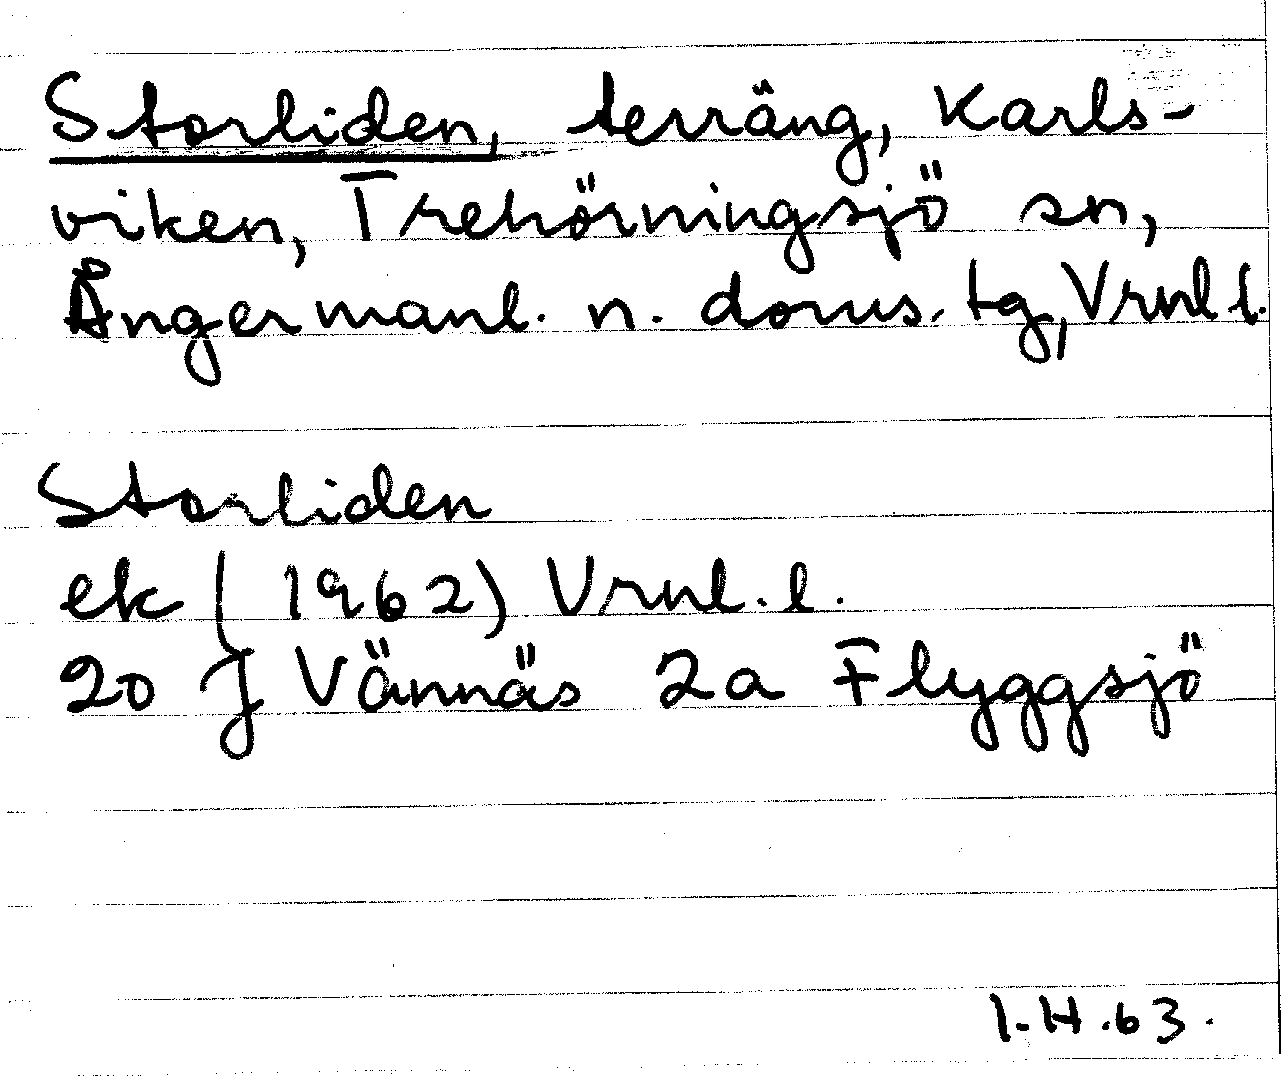 Storliden, terräng, Karls-
viken, Trehörningsjö sn,
Ångermanl. n. doms. tg, Vrnl l.
Storliden
ek (1962) Vrnl. l.
20 J Vännäs 2a Flyggsjö
I.H.63.